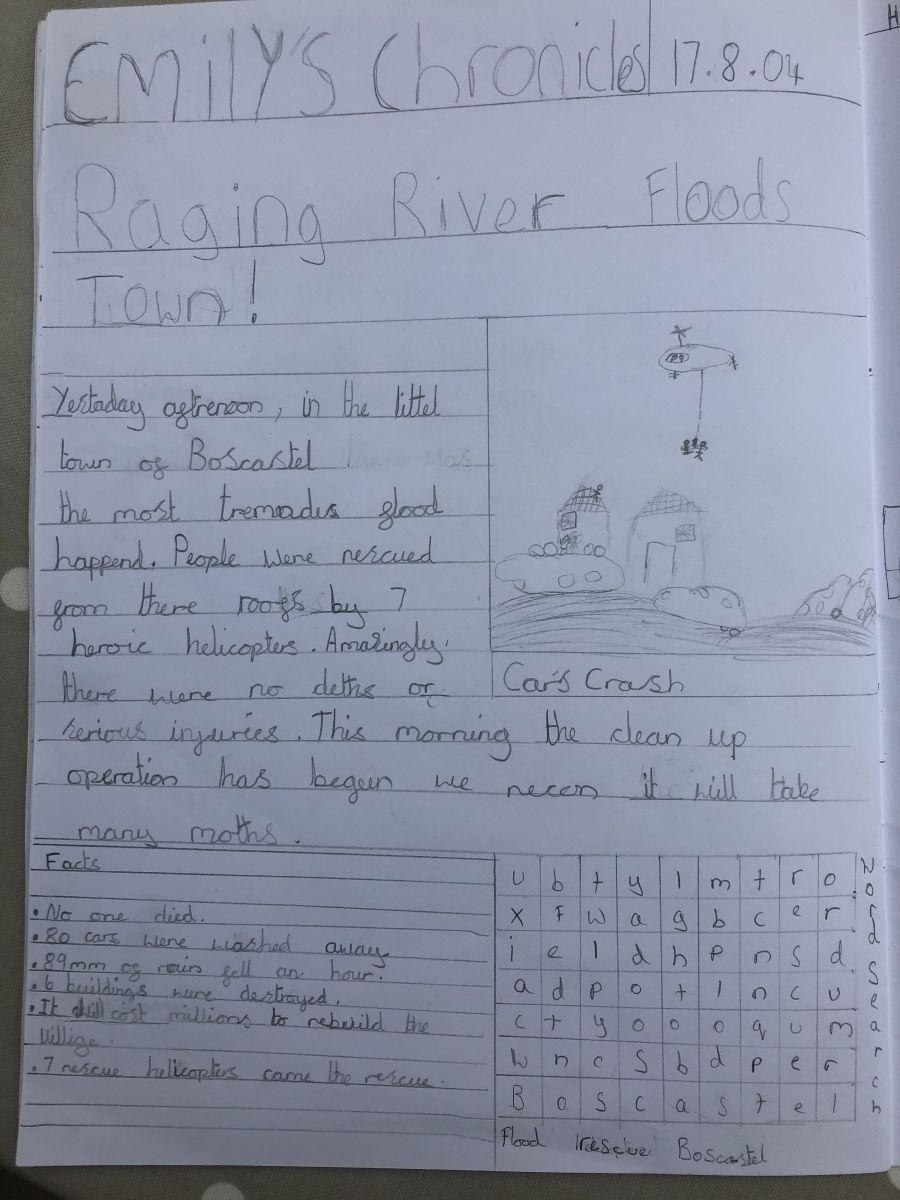 EMilY'S Chronicles 17.8.04
Raging River Floods
Town!
Yestaday aftrenoon, in the littel
town of Boscastel
the most tremadus flood
happend. People were rescued
from there roofs by 7
heroic helicopters. Amazingly
there were no deths or
serious injuries. This morning the clean up
operation has begun we recon it will take
many moths.
Car's Crash
Facts
• No one died.
• 80 cars were washed away
• 89mm of rain fell an hour.
• 6 buildings were destroyed.
• It will cost millions to rebuild the
village.
• 7 rescue helicopters came the rescue.
u b t y l m t r o
x f w a g b c e r
i e l d h p n s d
a d p o t l n c u
c t y o o o q u m
w n c s b d p e r
B o s c a s t e l
Word Search
Flood Boscastel